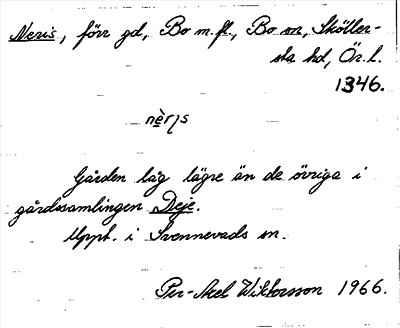 Neris, förr gd, Bo m.fl., Bo sn, Sköller-
sta hd, Ör. l.
1346.
Gården låg lägre än de övriga i
gårdssamlingen Deje.
Uppt. i Svennevads sn.
Per-Axel Wiktorsson 1966.